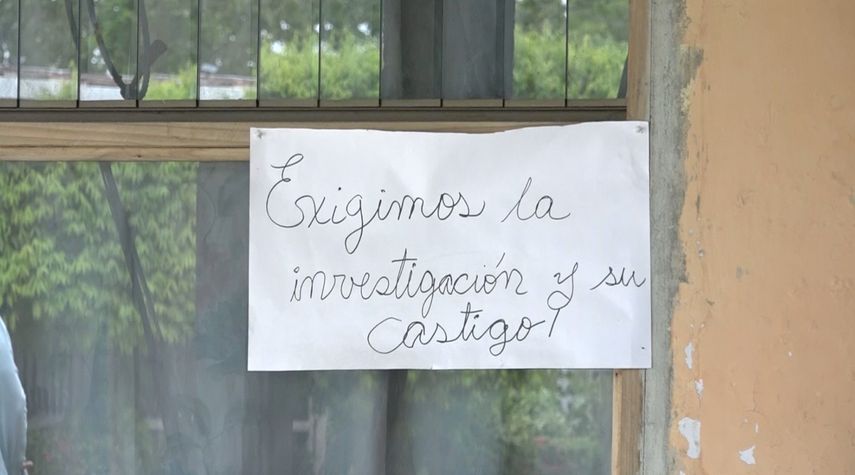 Exigimos la
investigación y su
castigo!